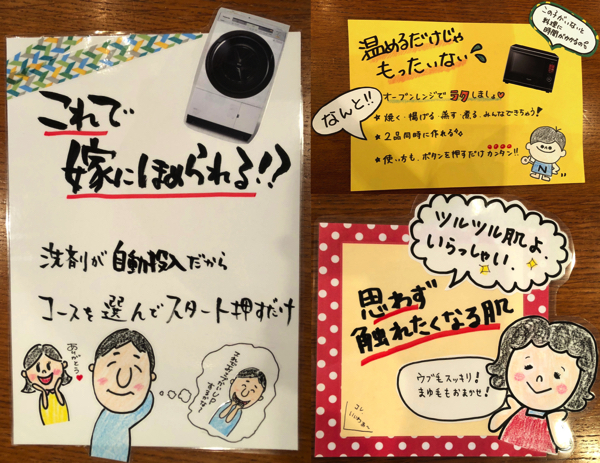 これで
嫁にほめられる!!?
洗剤が自動投入だから
コースを選んでスタート押すだけ
ありがとう
温めるだけじゃ
もったいない
このチがいないと
料理に
時間がかかるのよ
なんと!!
オーブンレンジでラクしましょ
★焼く・揚げる・蒸す・煮る・みんなできちゃう!
★2品同時に作れる
★使い方も、ボタンを押すだけカンタン!!
N
ツルツル肌よ
いらっしゃい
思わず
触れたくなる肌
ウブ毛スッキリ!
まゆ毛もおまかせ!
コレ
いいわぁ〜